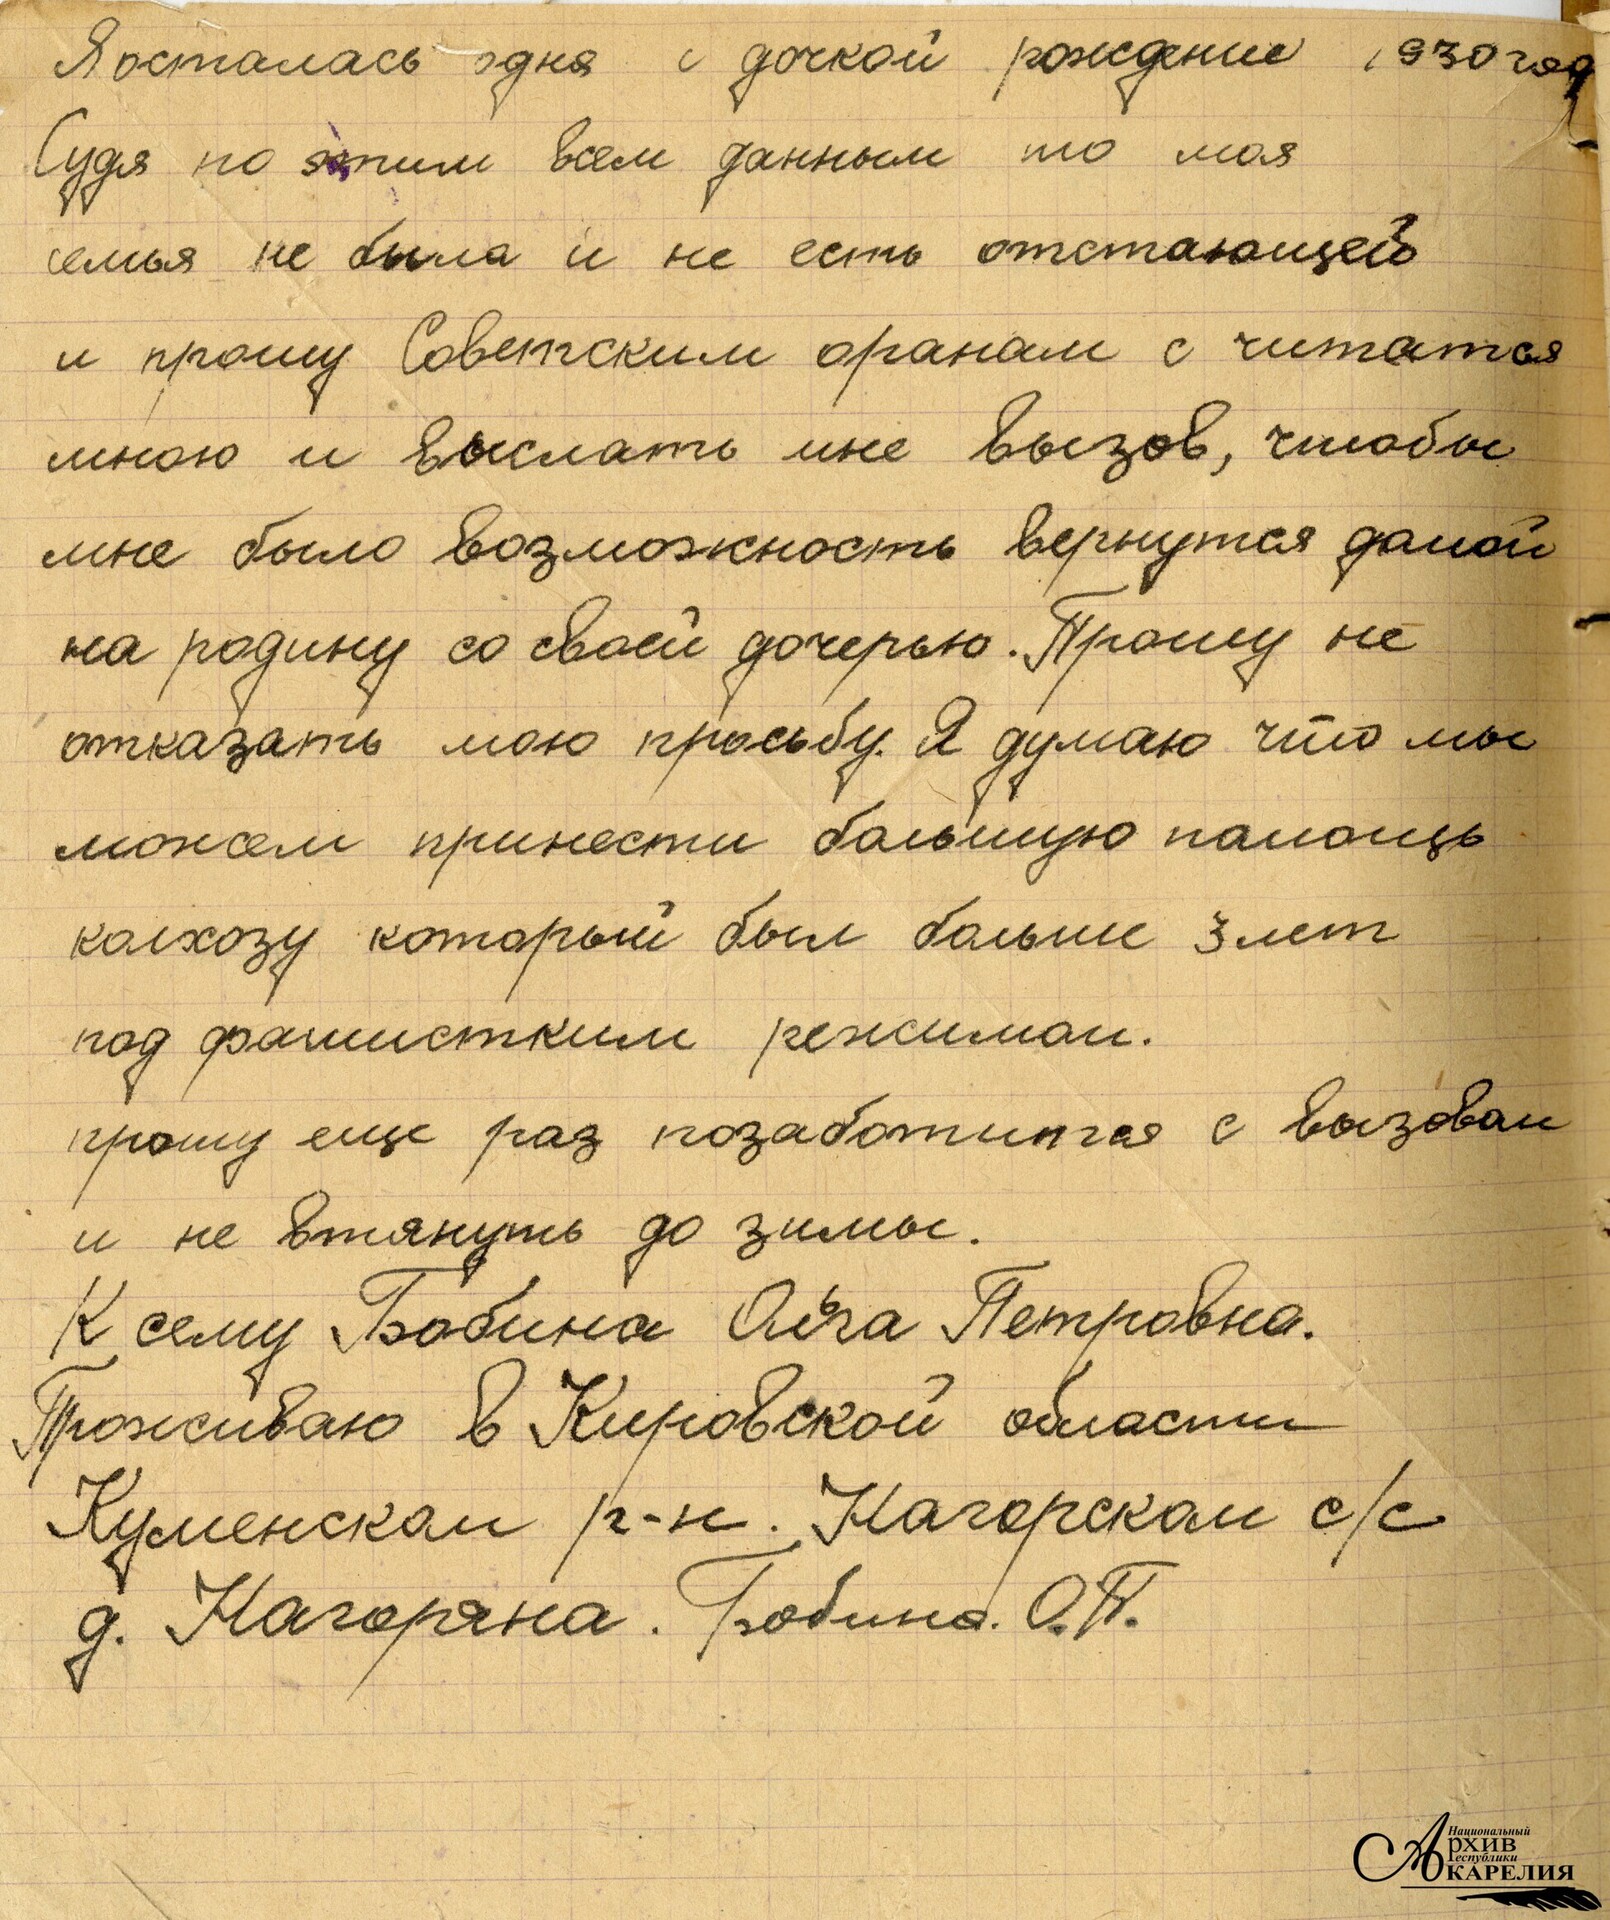 Я осталась одна с дочкой рождение 1930 года
Судя по этим всем данным то моя
семья не была и не есть отстающей
и прошу Советским оранам с читатся
мною и выслать мне вызов, чтобы
мне было возможность вернутся домой
на родину со своей дочерью. Прошу не
отказать мою просьбу. Я думаю что мы
можем принести большую помощь
колхозу который был больше 3 лет
под фашистким режимом.
прошу еще раз позаботится с вызовом
и не втянуть до зимы.
К сему Бобина Ольга Петровна.
Проживаю в Кировской области
Куменском р-н. Нагорском с/с
д. Нагоряна. Бобина. О.П.
Национальный
Архив
Республики
Карелия